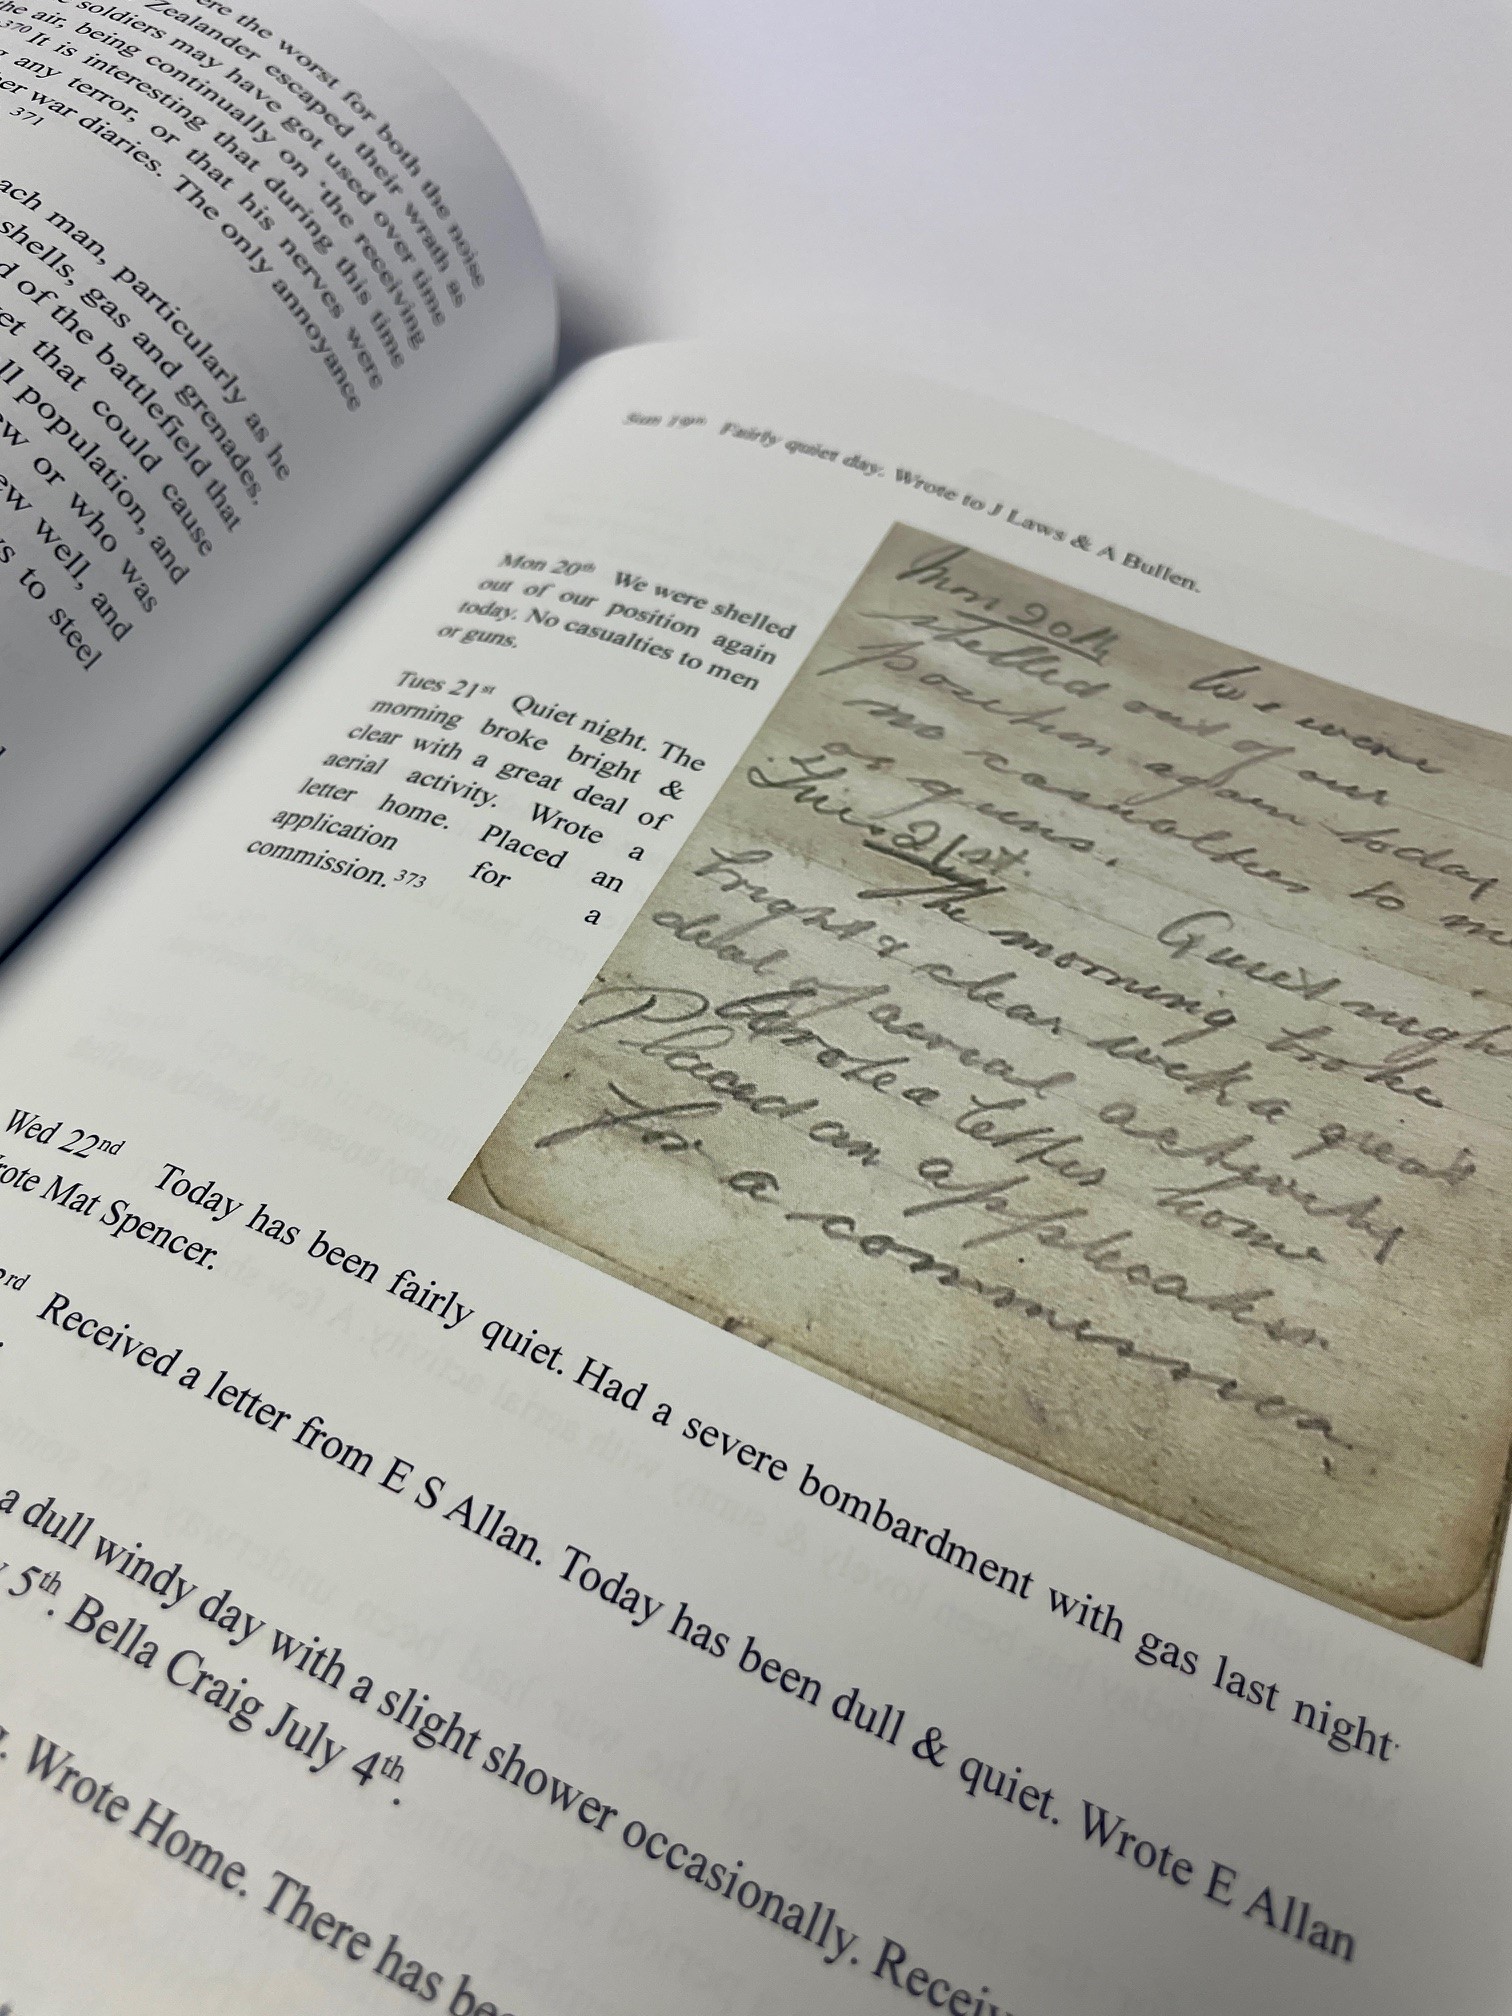 ere the worst for both the noise
Zealander escaped their wrath as
soldiers may have got used over time
the air, being continually on 'the receiving
370 It is interesting that during this time
any terror, or that his nerves were
er war diaries. The only annoyance
371
ach man, particularly as he
shells, gas and grenades.
d of the battlefield that
et that could cause
ll population, and
ew or who was
ew well, and
s to steel
Sun 19th Fairly quiet day. Wrote to J Laws & A Bullen.
Mon 20th We were shelled
out of our position again
today. No casualties to men
or guns.
Tues 21st Quiet night. The
morning broke bright &
clear with a great deal of
aerial activity. Wrote a
letter home. Placed an
application for a
commission. 373
Mon 20th We were
shelled out of our
position again today
no casualties to me
or guns.
Tues 21st. Quiet nigh
The morning broke
bright & clear with a great
deal of aereal activity
Wrote a letter home
Placed an application
for a commission.
Wed 22nd Today has been fairly quiet. Had a severe bombardment with gas last night.
rote Mat Spencer.
3rd Received a letter from E S Allan. Today has been dull & quiet. Wrote E Allan
a dull windy day with a slight shower occasionally. Receiv
y 5th. Bella Craig July 4th.
. Wrote Home. There has bee